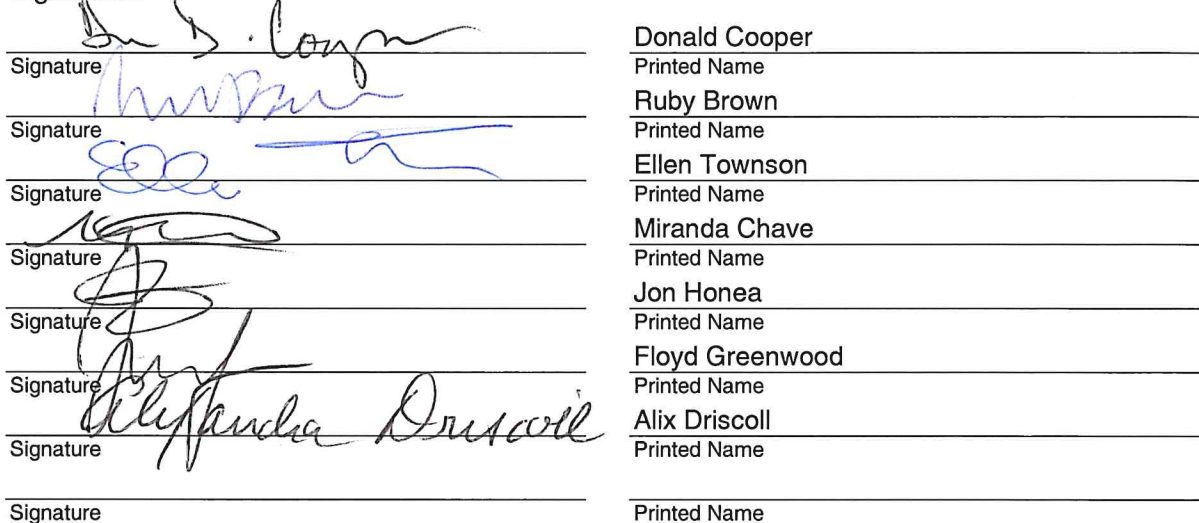 Donald Cooper
Signature Printed Name
Ruby Brown
Signature Printed Name
Ellen Townson
Signature Printed Name
Miranda Chave
Signature Printed Name
Jon Honea
Signature Printed Name
Floyd Greenwood
Signature Printed Name
Alexandra Driscoll Alix Driscoll
Signature Printed Name
Signature Printed Name